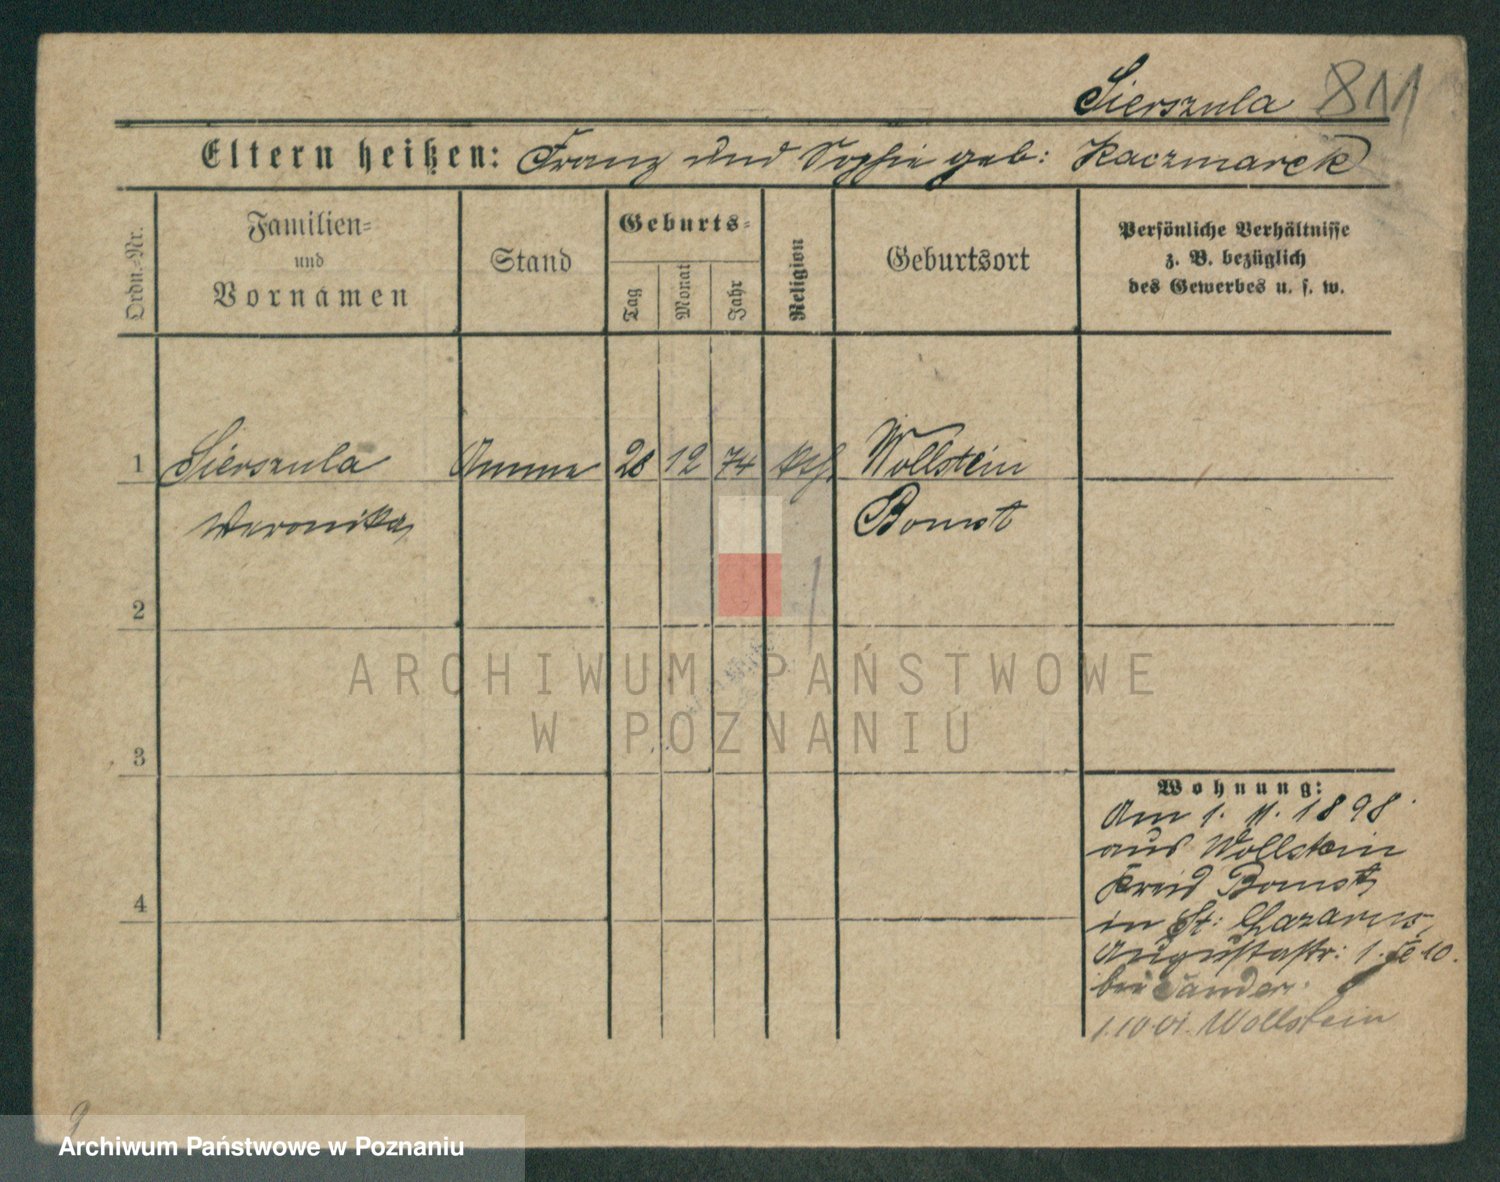 Sierszula 811
Eltern heißen: Franz und Sophie geb: Kaczmarek
Ordn.-Nr.
Familien-
und
Vornamen
Stand
Geburts-
Tag
Monat
Jahr
Religion
Geburtsort
Persönliche Verhältnisse
z. B. bezüglich
des Gewerbes u. s. w.
1 Sierszula Amme 28 12 74 kth. Wollstein
Weronika Bomst
2
3
4
Wohnung:
Am 1. 11. 1898
aus Wollstein
Kreis Bomst
in St: Lazarus
Augustastr: 1. 10.
bei Sander.
1.10 01. Wollstein
9
ARCHIWUM PAŃSTWOWE
W POZNANIU
Archiwum Państwowe w Poznaniu